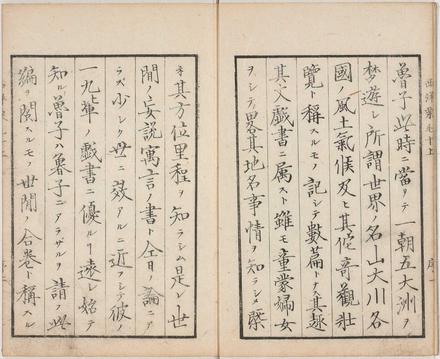 魯子此時ニ當テ一朝五大洲ヲ
夢遊シ所謂世界ノ名山大川各
國ノ風土氣候及ヒ其佗奇觀壯
覽ト稱スルモノ記シテ數篇トナス其趣
其父戯書ニ属スト雖モ童蒙婦女
ヲシテ畧其地名事情ヲ知ラシメ槩
子其方位里程ヲ知ラシム是レ世
間ノ妄説寓言ノ書ト仝日ノ論ニア
ラズ少シク世ニ效アルニ近フシテ彼ノ
一九輩ノ戯書ニ優ルヿ遠シ始テ
知ル魯子ハ魯子ニアラザルヲ請フ此
編ヲ閲スルモノ世間ノ合巻ト稱スル